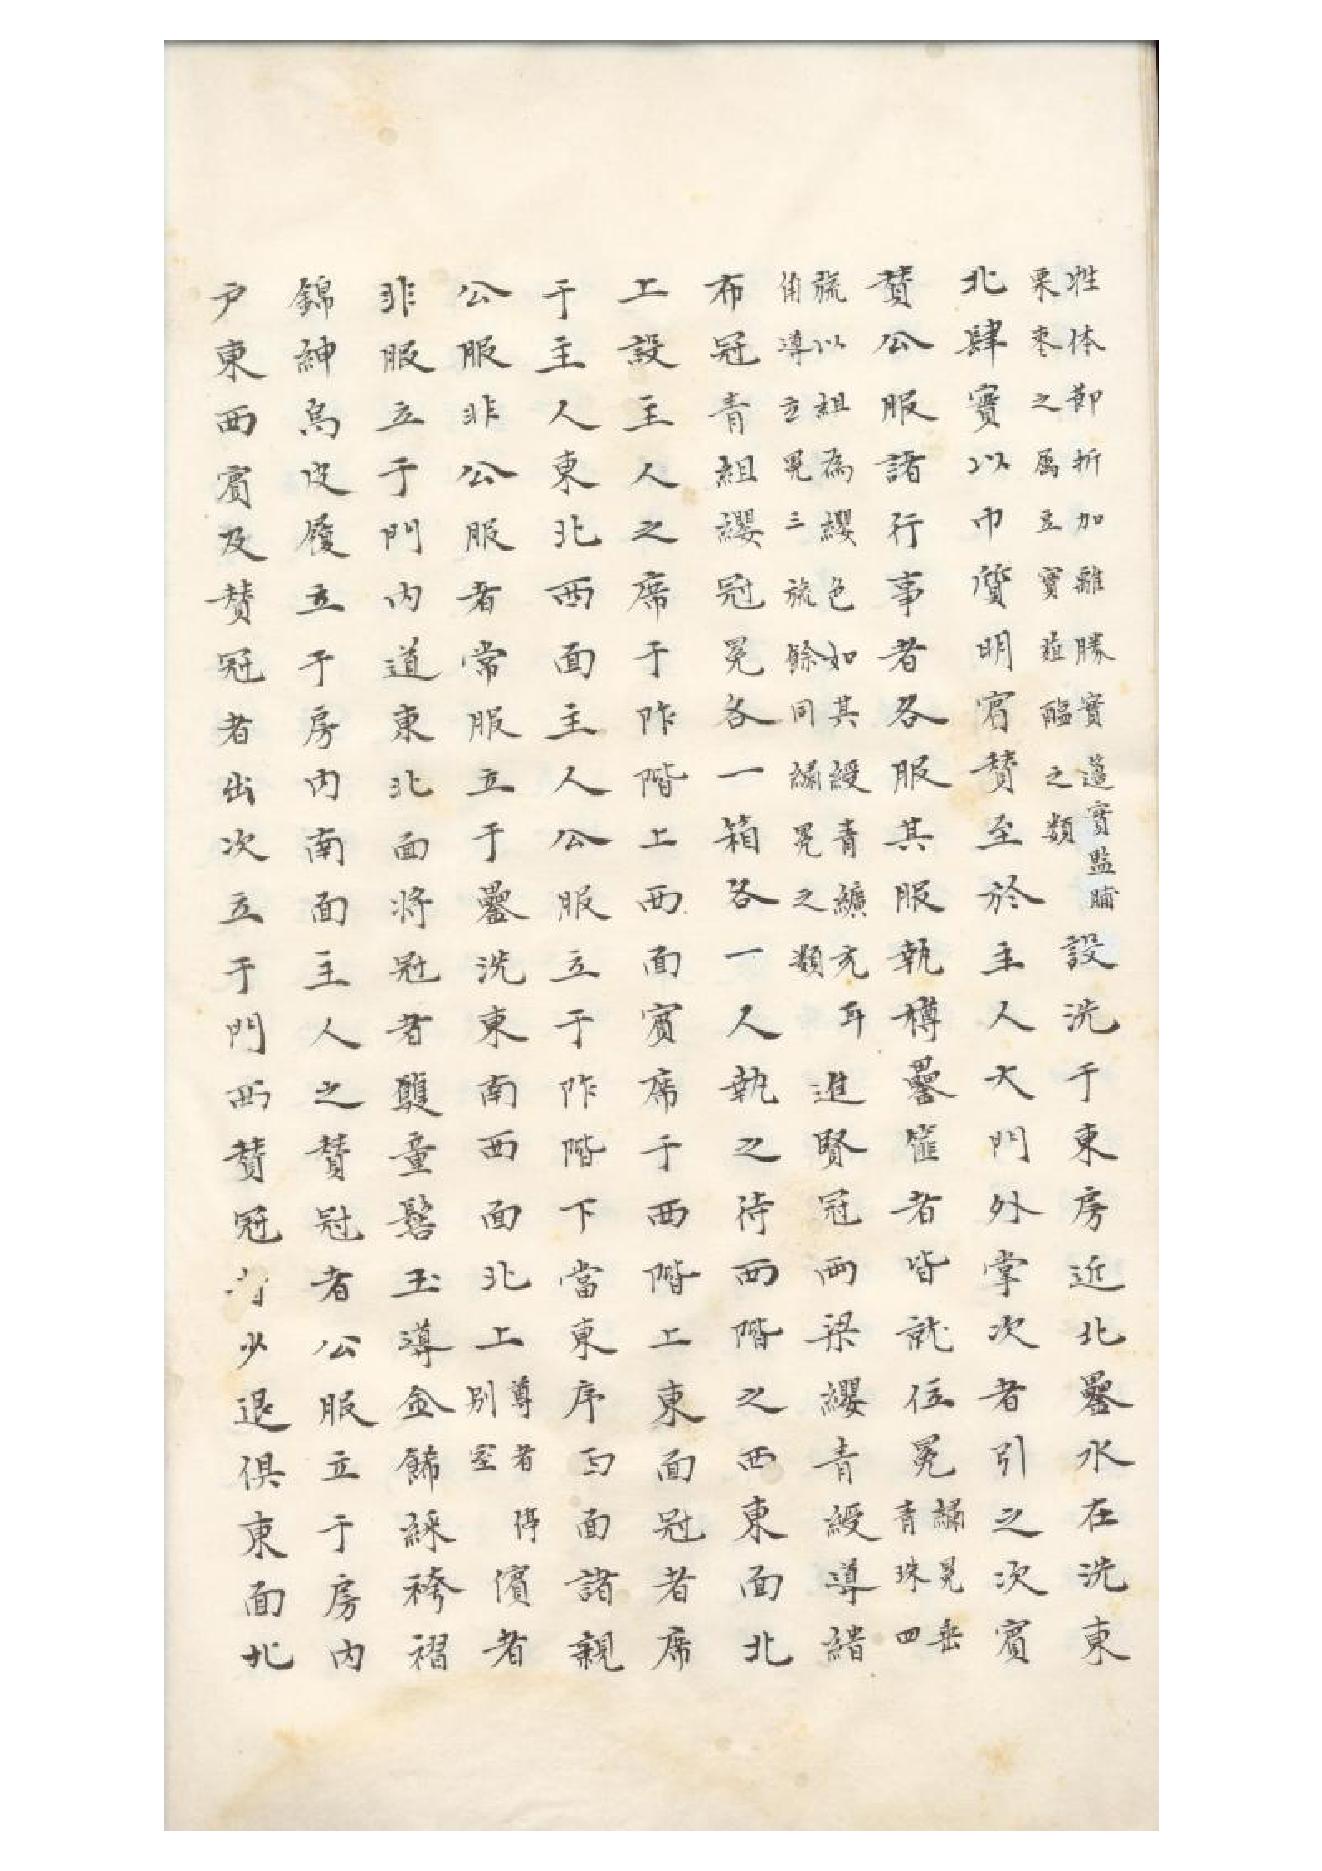 牲体節折加離勝實籩實監脯
栗棗之屬豆實葅醢之類
設洗于東房近北罍水在洗東
北肆實以巾質明賓贊至於主人大門外掌次者引之次賓
贊公服諸行事者各服其服執樽罍篚者皆就位冕
繡冕垂
青珠四
旒以組為纓色如其綬青纊充耳
角導玄冕三旒餘同繡冕之類
進賢冠兩梁纓青綬導緇
布冠青組纓冠冕各一箱各一人執之待西階之西東面北
上設主人之席于阼階上西面賓席于西階上東面冠者席
于主人東北西面主人公服立于阼階下當東序西面諸親
公服非公服者常服立于罍洗東南西面北上
尊者停
別室
儐者
非服立于門內道東北面將冠者雙童髻玉導金飾綵袴褶
錦紳烏皮履立于房內南面主人之贊冠者公服立于房內
戶東西賓及贊冠者出次立于門西贊冠少退俱東面北